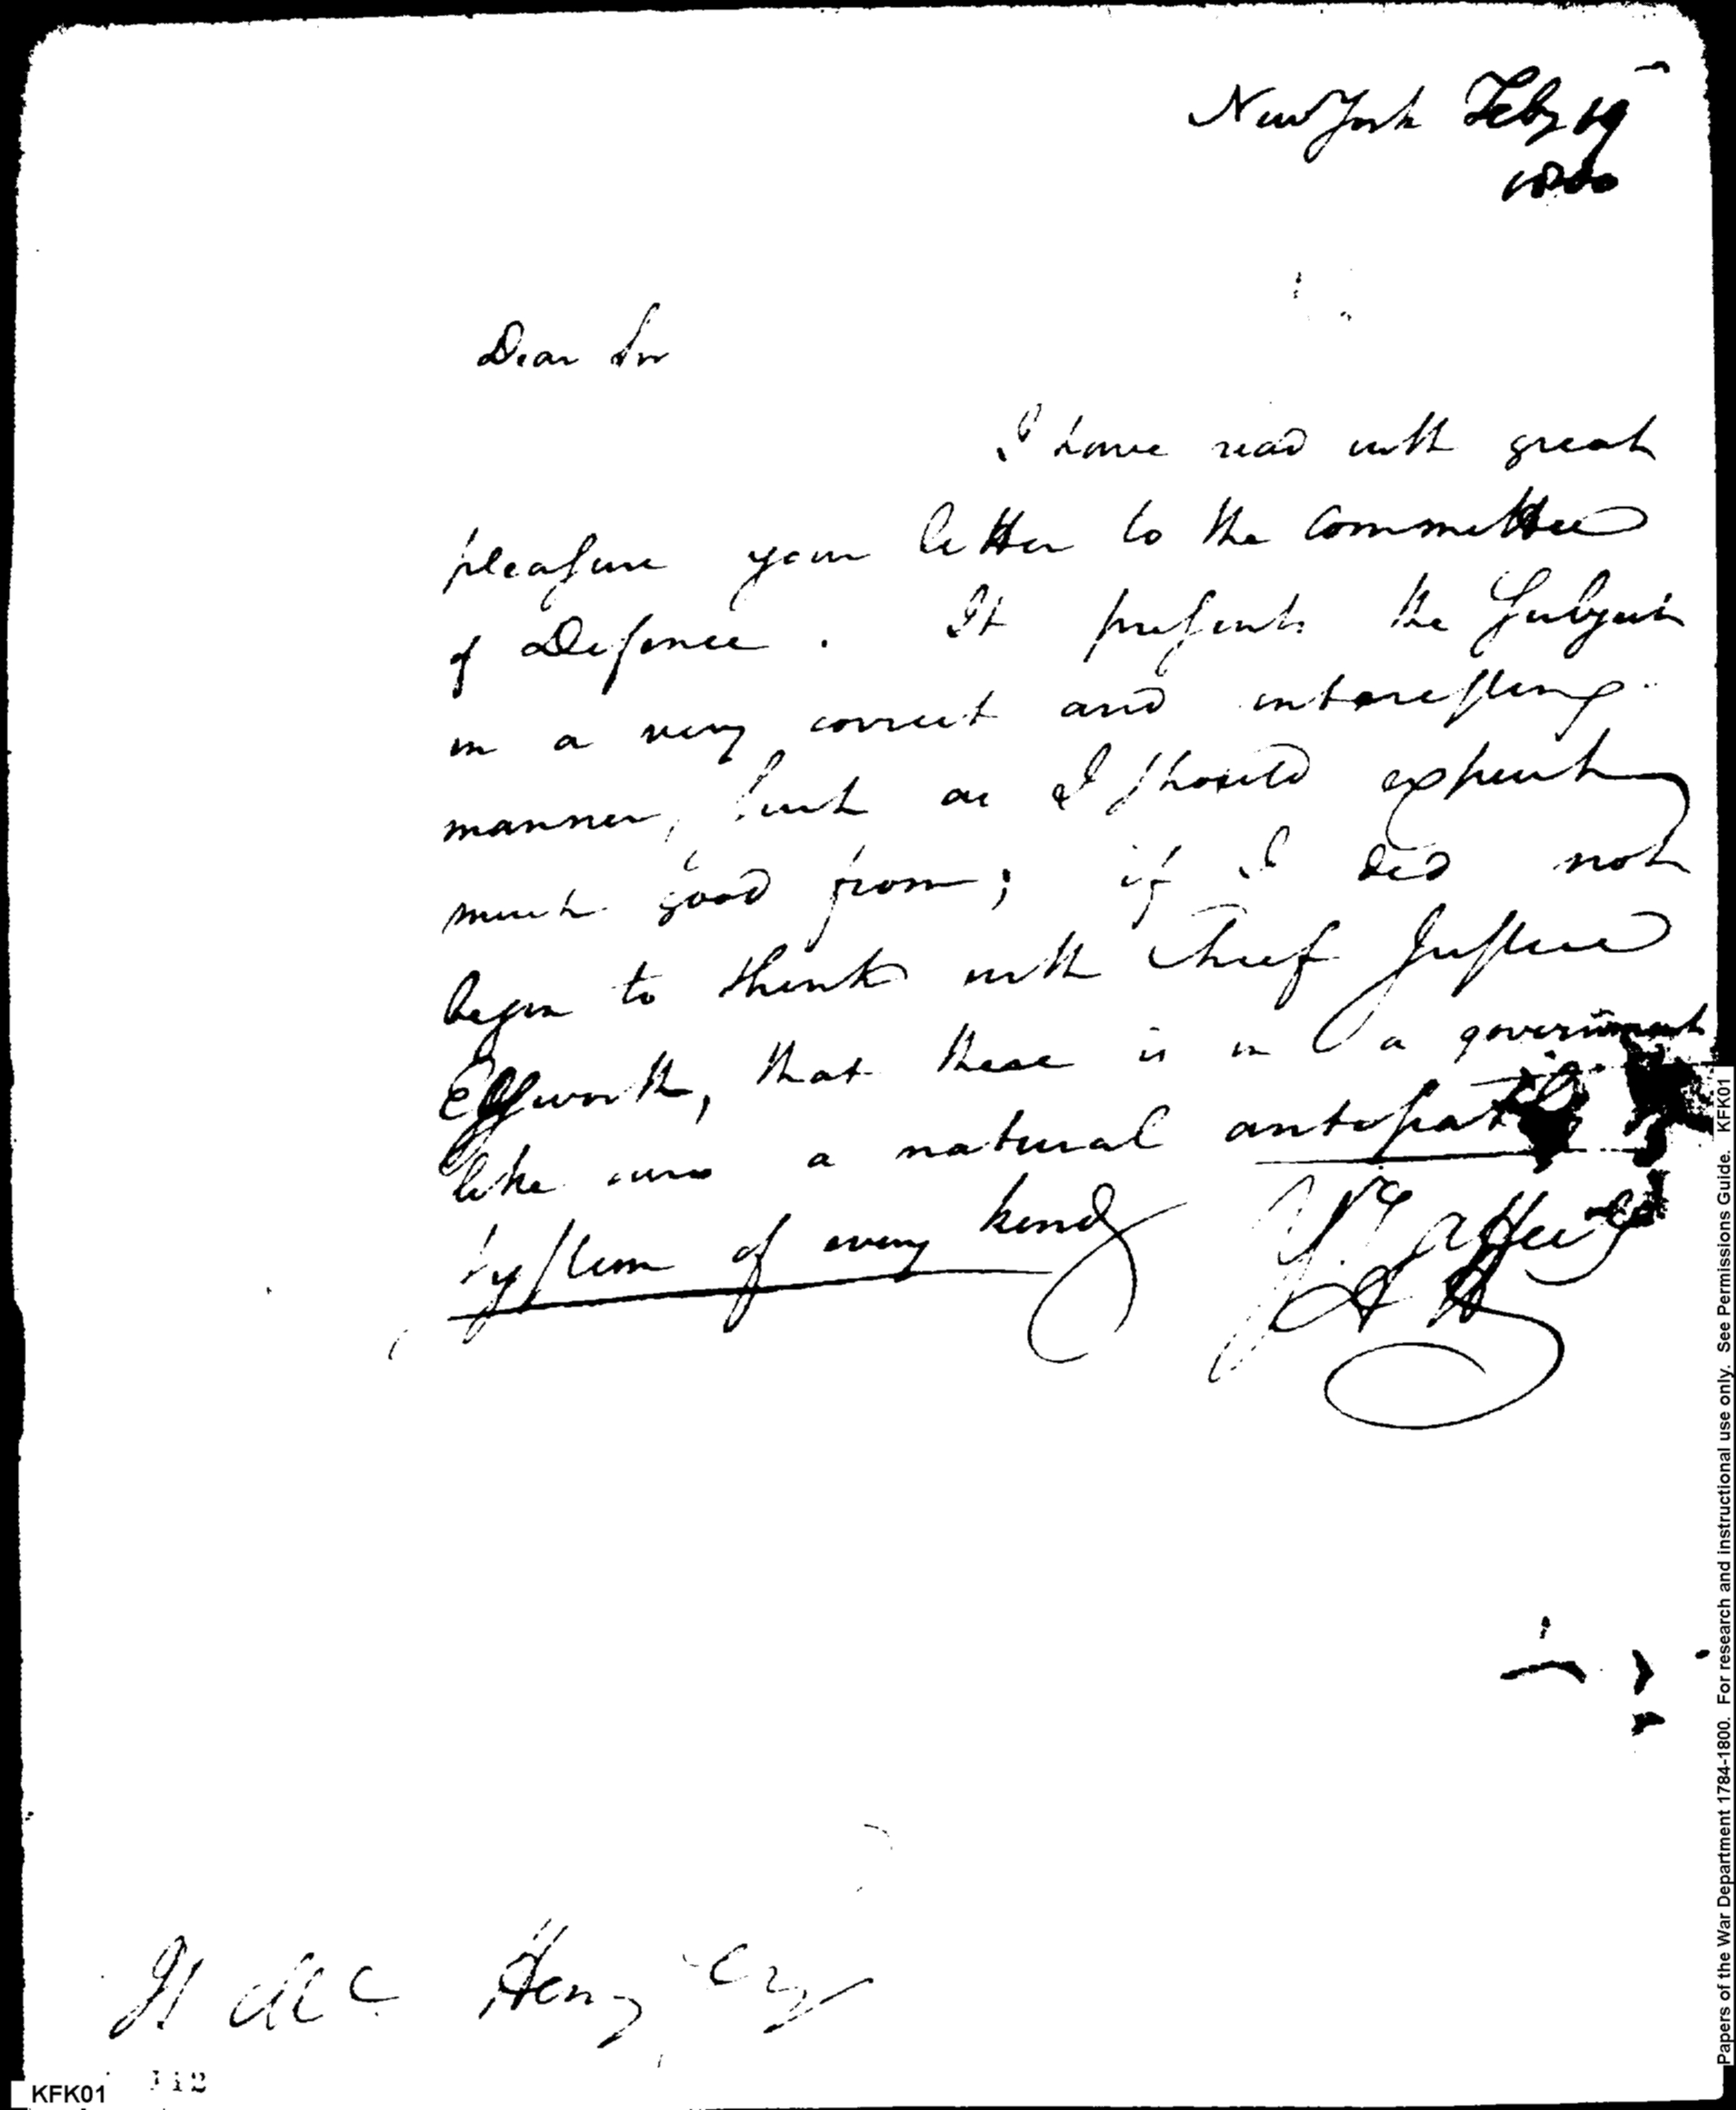 New York Feby 19
1800
Dear Sir
I have read with great
pleasure your letter to the Committee
of Defence. It presents the Subject
in a very correct and interesting
manner, such as I should expect
much good from; if I did not
begin to think with Chief Justice
Ellsworth, that there is in a government
like ours a natural antipathy to
system of every kind
Yrs Affecly
A H
Js McHenry Esq
KFK01 112
Papers of the War Department 1784-1800. For research and instructional use only. See Permissions Guide. KFK01